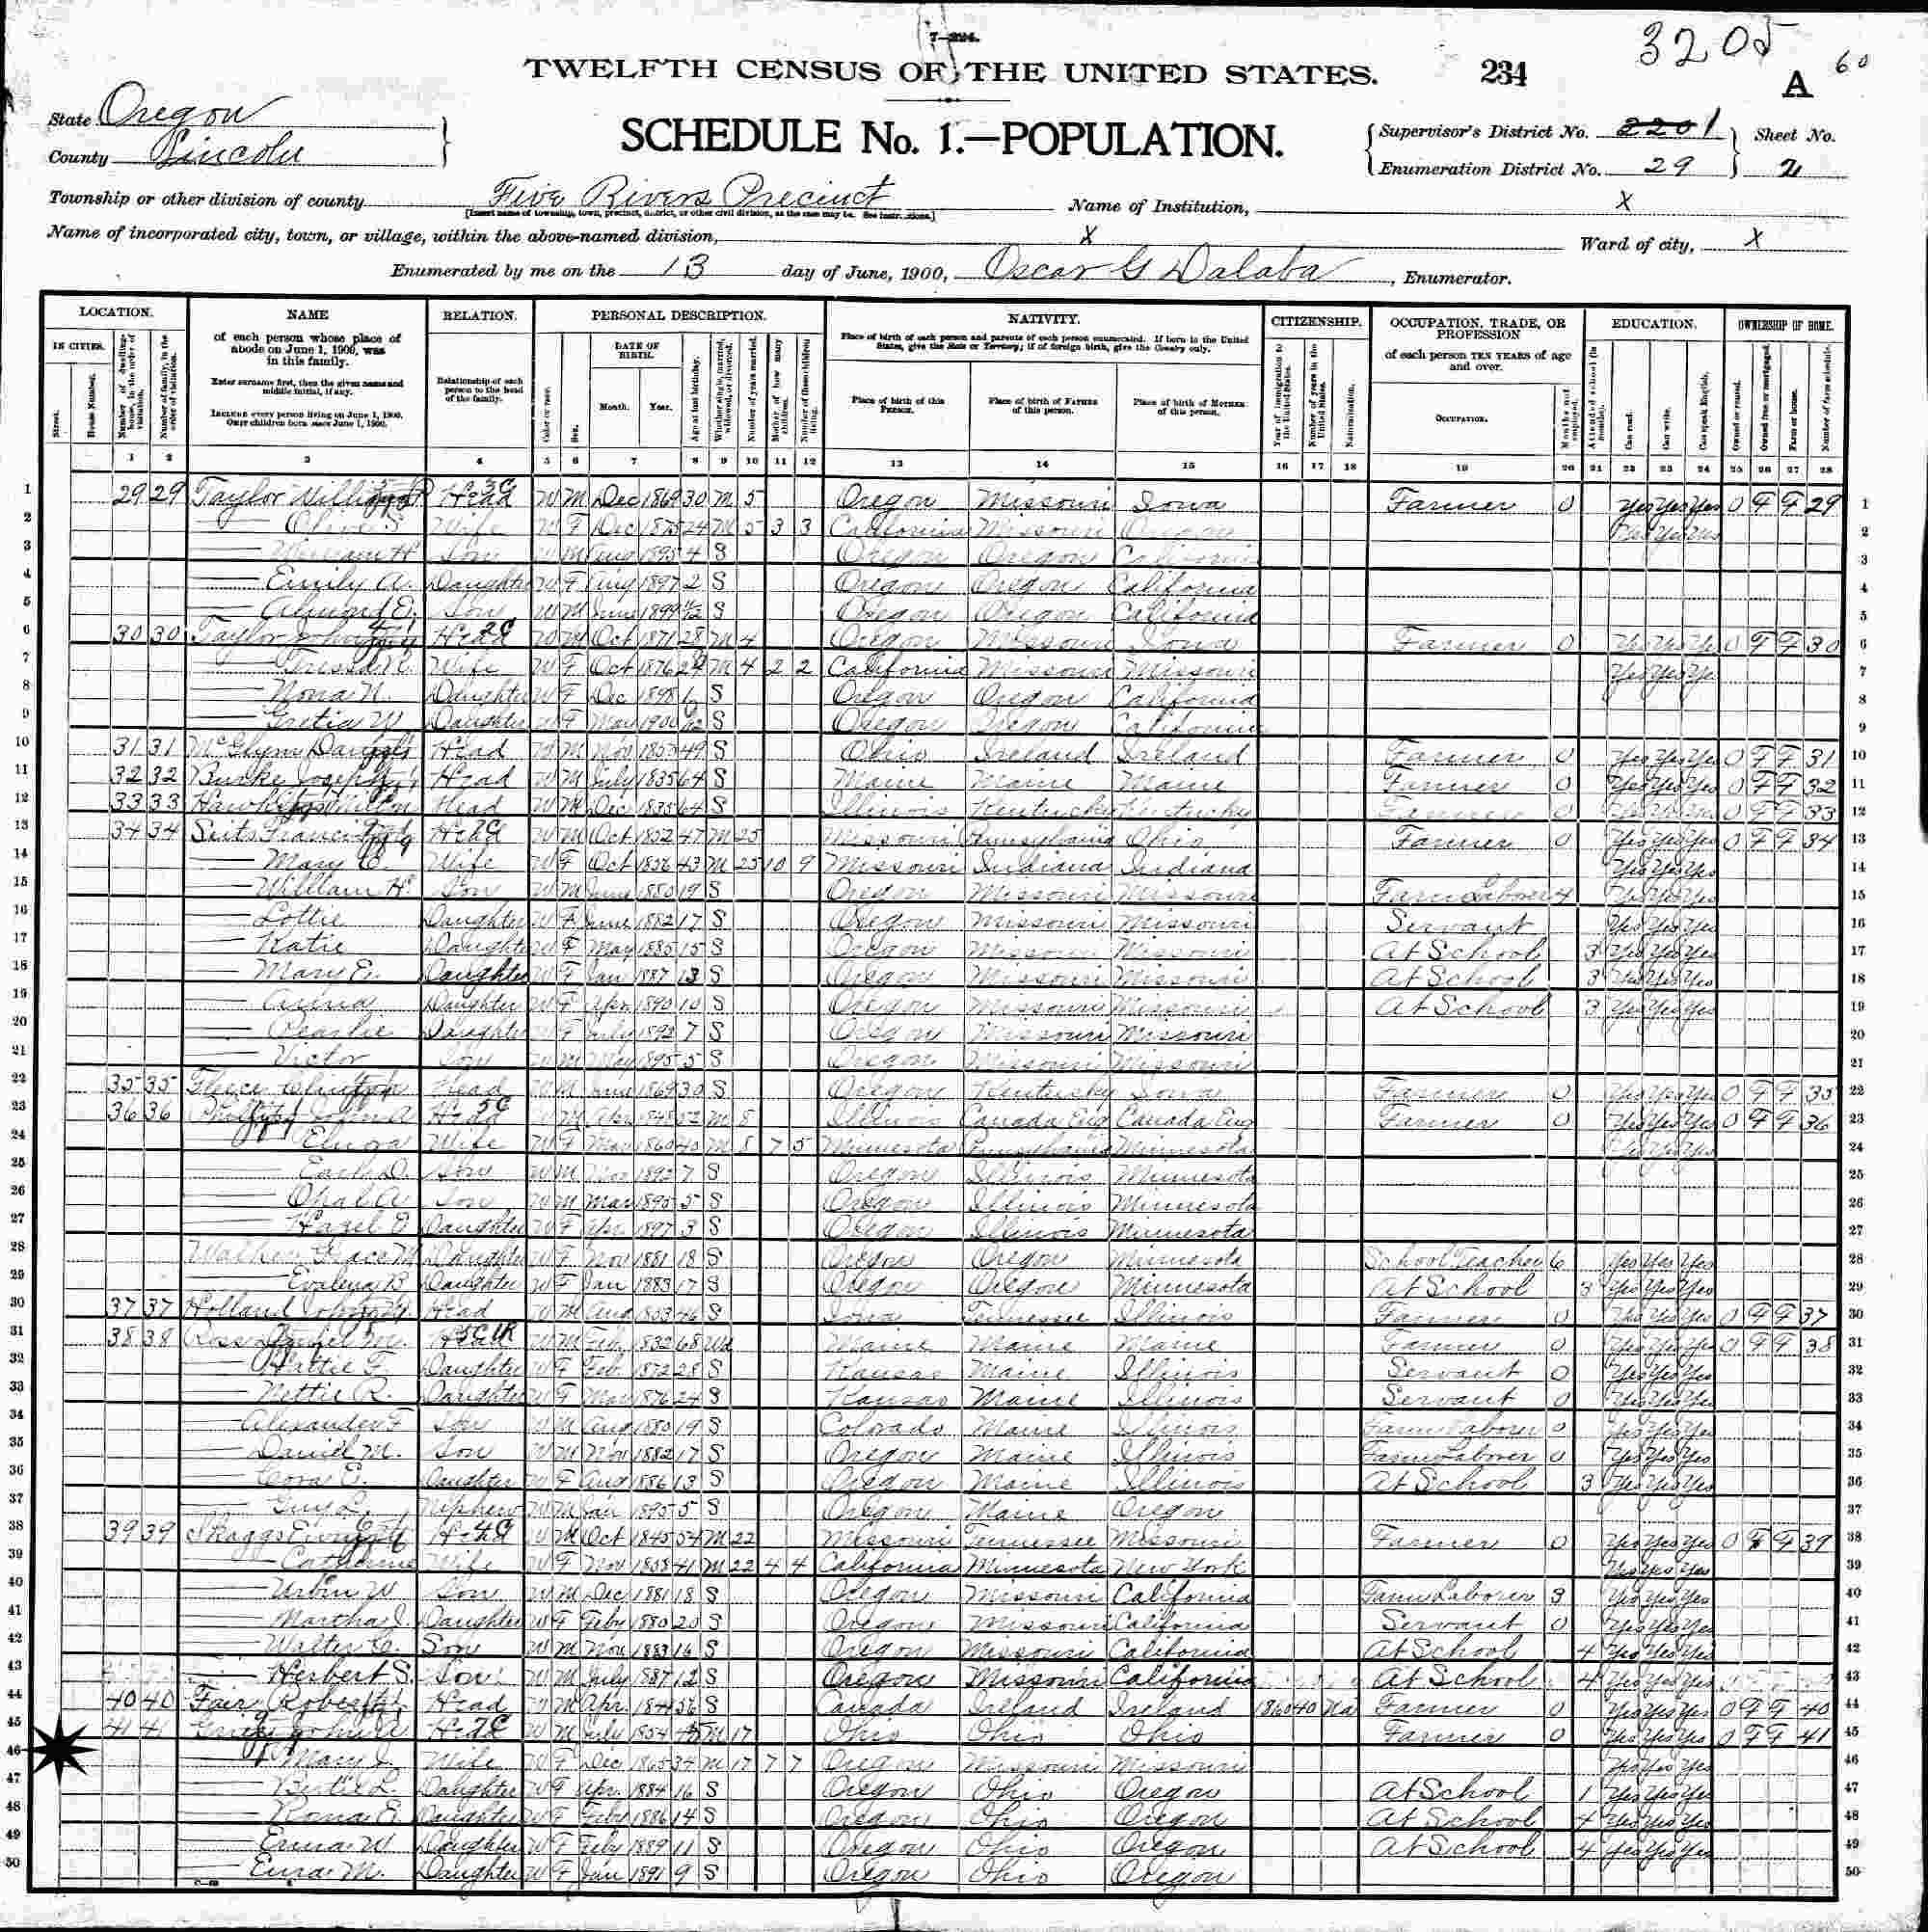 7—224.
3205
60
TWELFTH CENSUS OF THE UNITED STATES.
234
A
State Oregon
County Lincoln
SCHEDULE No. 1.—POPULATION.
Supervisor's District No. 2201
Sheet No.
Enumeration District No. 29
2
Township or other division of county Five Rivers Precinct
Name of Institution, X
Name of incorporated city, town, or village, within the above-named division, X
Ward of city, X
Enumerated by me on the 13 day of June, 1900, Oscar G Dalaba, Enumerator.
LOCATION. NAME RELATION. PERSONAL DESCRIPTION. NATIVITY. CITIZENSHIP. OCCUPATION, TRADE, OR PROFESSION EDUCATION. OWNERSHIP OF HOME.
IN CITIES.
of each person whose place of abode on June 1, 1900, was in this family.
Enter surname first, then the given name and middle initial, if any.
INCLUDE every person living on June 1, 1900. OMIT children born since June 1, 1900.
Relationship of each person to the head of the family.
DATE OF BIRTH.
Month. Year.
Place of birth of this PERSON. Place of birth of FATHER of this person. Place of birth of MOTHER of this person.
of each person TEN YEARS of age and over.
OCCUPATION.
1 2 3 4 5 6 7 8 9 10 11 12 13 14 15 16 17 18 19 20 21 22 23 24 25 26 27 28
1 29 29 Taylor Head W M Dec 1869 30 M 5 Oregon Missouri Iowa Farmer 0 Yes Yes Yes O F F 29 1
2 Olive S Wife W F Dec 1875 24 M 5 3 3 California Missouri Oregon Yes Yes Yes 2
3 William H Son W M Aug 1895 4 S Oregon Oregon California 3
4 Emily A. Daughter W F Aug 1897 2 S Oregon Oregon California 4
5 Almond E. Son W M June 1899 11/12 S Oregon Oregon California 5
6 30 30 Taylor Head W M Oct 1871 28 M 4 Oregon Missouri Iowa Farmer 0 Yes Yes Yes O F F 30 6
7 Wife W F Oct 1876 M 4 2 2 California Missouri Missouri Yes Yes Yes 7
8 Nona N. Daughter W F Dec 1898 1 S Oregon Oregon California 8
9 Gretia W Daughter W F May 1900 S Oregon Oregon California 9
10 31 31 McGlynn Head W M Nov 49 S Ohio Ireland Ireland Farmer 0 Yes Yes Yes O F F 31 10
11 32 32 Burke Joseph Head W M July 1835 64 S Maine Maine Maine Farmer 0 Yes Yes Yes O F F 32 11
12 33 33 Head W M Dec 1835 64 S Illinois Kentucky Kentucky Farmer 0 Yes Yes Yes O F F 33 12
13 34 34 Seits Head W M Oct 1852 47 M 25 Missouri Pennsylvania Ohio Farmer 0 Yes Yes Yes O F F 34 13
14 Mary E. Wife W F Oct 1856 43 M 25 10 9 Missouri Indiana Indiana Yes Yes Yes 14
15 William H. Son W M June 1880 19 S Oregon Missouri Missouri Farm Laborer 4 Yes Yes Yes 15
16 Lottie Daughter W F June 1882 17 S Oregon Missouri Missouri Servant Yes Yes Yes 16
17 Katie Daughter W F May 1885 15 S Oregon Missouri Missouri At School 3 Yes Yes Yes 17
18 Mary E. Daughter W F Jan 1887 13 S Oregon Missouri Missouri At School 3 Yes Yes Yes 18
19 Anna Daughter W F Apr 1890 10 S Oregon Missouri Missouri At School 3 Yes Yes Yes 19
20 Pearlie Daughter W F July 1892 7 S Oregon Missouri Missouri 20
21 Victor Son W M May 1895 5 S Oregon Missouri Missouri 21
22 35 35 Head W M June 1869 30 S Oregon Kentucky Iowa Farmer 0 Yes Yes Yes O F F 35 22
23 36 36 John A Head W M Apr 1848 52 M 8 Illinois Canada Eng Canada Eng Farmer 0 Yes Yes Yes O F F 36 23
24 Elnora Wife W F Mar 1860 40 M 8 7 5 Minnesota Pennsylvania Minnesota Yes Yes Yes 24
25 Earl D. Son W M Nov 1892 7 S Oregon Illinois Minnesota 25
26 Opal A Son W M Mar 1895 5 S Oregon Illinois Minnesota 26
27 Hazel E Daughter W F Apr 1897 3 S Oregon Illinois Minnesota 27
28 Walker Grace M Daughter W F Nov 1881 18 S Oregon Oregon Minnesota School Teacher 6 Yes Yes Yes 28
29 Evalena B Daughter W F Jan 1883 17 S Oregon Oregon Minnesota At School 3 Yes Yes Yes 29
30 37 37 Holland Head W M Aug 1853 46 S Iowa Tennessee Illinois Farmer 0 Yes Yes Yes O F F 37 30
31 38 38 Ross Daniel M. Head W M Feb 1832 68 Wd Maine Maine Maine Farmer 0 Yes Yes Yes O F F 38 31
32 Hattie F Daughter W F Feb 1872 28 S Kansas Maine Illinois Servant 0 Yes Yes Yes 32
33 Nettie R. Daughter W F Mar 1876 24 S Kansas Maine Illinois Servant 0 Yes Yes Yes 33
34 Alexander F Son W M Aug 1880 19 S Colorado Maine Illinois Farm Laborer 0 Yes Yes Yes 34
35 Daniel M. Son W M Nov 1882 17 S Oregon Maine Illinois Farm Laborer 0 Yes Yes Yes 35
36 Cora E. Daughter W F Aug 1886 13 S Oregon Maine Illinois At School 3 Yes Yes Yes 36
37 Guy L. Nephew W M Jan 1895 5 S Oregon Maine Oregon 37
38 39 39 Skaggs Head W M Oct 1845 54 M 22 Missouri Tennessee Missouri Farmer 0 Yes Yes Yes O F F 39 38
39 Catherine Wife W F Nov 1858 41 M 22 4 4 California Minnesota New York Yes Yes Yes 39
40 Urbin W Son W M Dec 1881 18 S Oregon Missouri California Farm Laborer 3 Yes Yes Yes 40
41 Martha J. Daughter W F Feby 1880 20 S Oregon Missouri California Servant 0 Yes Yes Yes 41
42 Walter C. Son W M Nov 1883 16 S Oregon Missouri California At School 4 Yes Yes Yes 42
43 Herbert S. Son W M July 1887 12 S Oregon Missouri California At School 4 Yes Yes Yes 43
44 40 40 Fair Robert Head W M Apr 1844 56 S Canada Ireland Ireland 1860 40 Na Farmer 0 Yes Yes Yes O F F 40 44
45 41 41 Head W M July 1854 45 M 17 Ohio Ohio Ohio Farmer 0 Yes Yes Yes O F F 41 45
46 Mary J. Wife W F Dec 1865 34 M 17 7 7 Oregon Missouri Missouri Yes Yes Yes 46
47 Bertie L. Daughter W F Apr 1884 16 S Oregon Ohio Oregon At School 1 Yes Yes Yes 47
48 Rona E. Daughter W F Feby 1886 14 S Oregon Ohio Oregon At School 4 Yes Yes Yes 48
49 Erma W Daughter W F Feby 1889 11 S Oregon Ohio Oregon At School 4 Yes Yes Yes 49
50 Ena M. Daughter W F Jan 1891 9 S Oregon Ohio Oregon 50